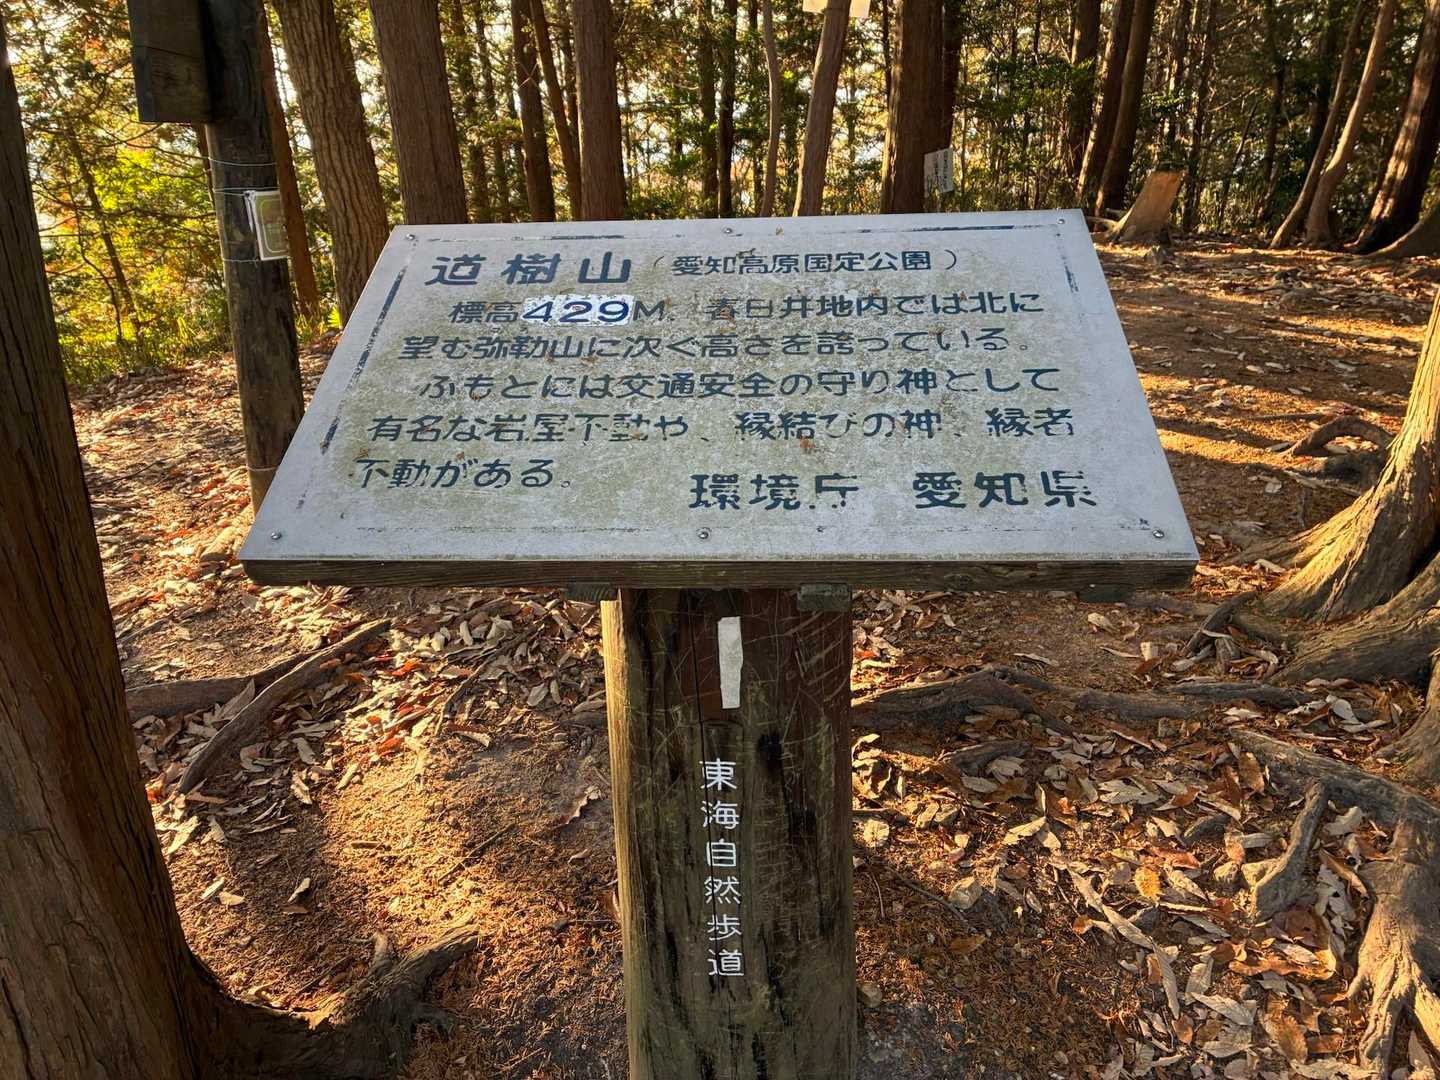 道樹山（愛知高原国定公園）
標高429M、春日井地内では北に
望む弥勒山に次ぐ高さを誇っている。
ふもとには交通安全の守り神として
有名な岩屋不動や、縁結びの神、縁者
不動がある。
環境庁 愛知県
東海自然歩道